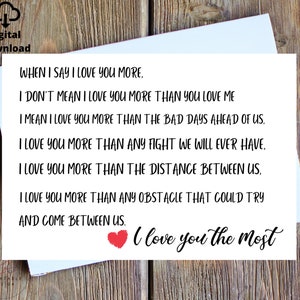 igital
ownload
WHEN I SAY I LOVE YOU MORE,
I DON'T MEAN I LOVE YOU MORE THAN YOU LOVE ME
I MEAN I LOVE YOU MORE THAN THE BAD DAYS AHEAD OF US,
I LOVE YOU MORE THAN ANY FIGHT WE WILL EVER HAVE,
I LOVE YOU MORE THAN THE DISTANCE BETWEEN US,
I LOVE YOU MORE THAN ANY OBSTACLE THAT COULD TRY
AND COME BETWEEN US.
I love you the most